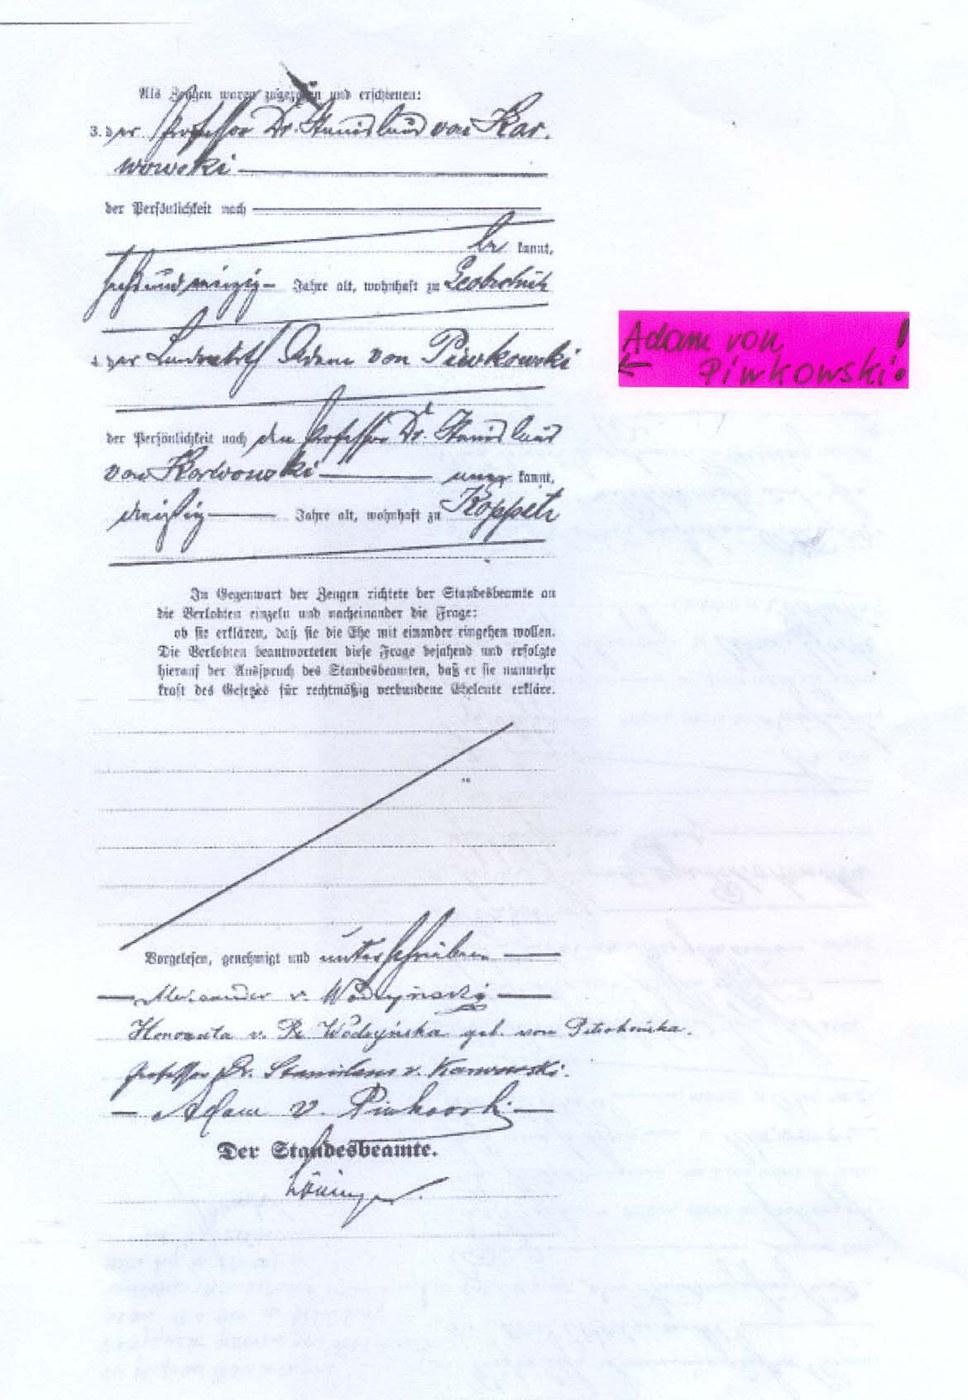 Als Zeugen waren zugezogen und erschienen:
3. der Professor Dr. Stanislaus von Kar-
wowski
der Persönlichkeit nach
be kannt,
sechsundvierzig Jahre alt, wohnhaft zu Leobschütz
4. der Landwirth Adam von Piwkowski
Adam von
Piwkowski!
der Persönlichkeit nach den Professor Dr. Stanislaus
von Karwowski kannt,
dreißig Jahre alt, wohnhaft zu Koppitz
In Gegenwart der Zeugen richtete der Standesbeamte an
die Verlobten einzeln und nacheinander die Frage:
ob sie erklären, daß sie die Ehe mit einander eingehen wollen.
Die Verlobten beantworteten diese Frage bejahend und erfolgte
hierauf der Ausspruch des Standesbeamten, daß er sie nunmehr
kraft des Gesetzes für rechtmäßig verbundene Eheleute erkläre.
Vorgelesen, genehmigt und unterschrieben
Alexander v. Wodzyński
Honorata v. Wodzyńska geb. von
Professor Dr. Stanislaus v. Karwowski.
Adam v. Piwkowski
Der Standesbeamte.